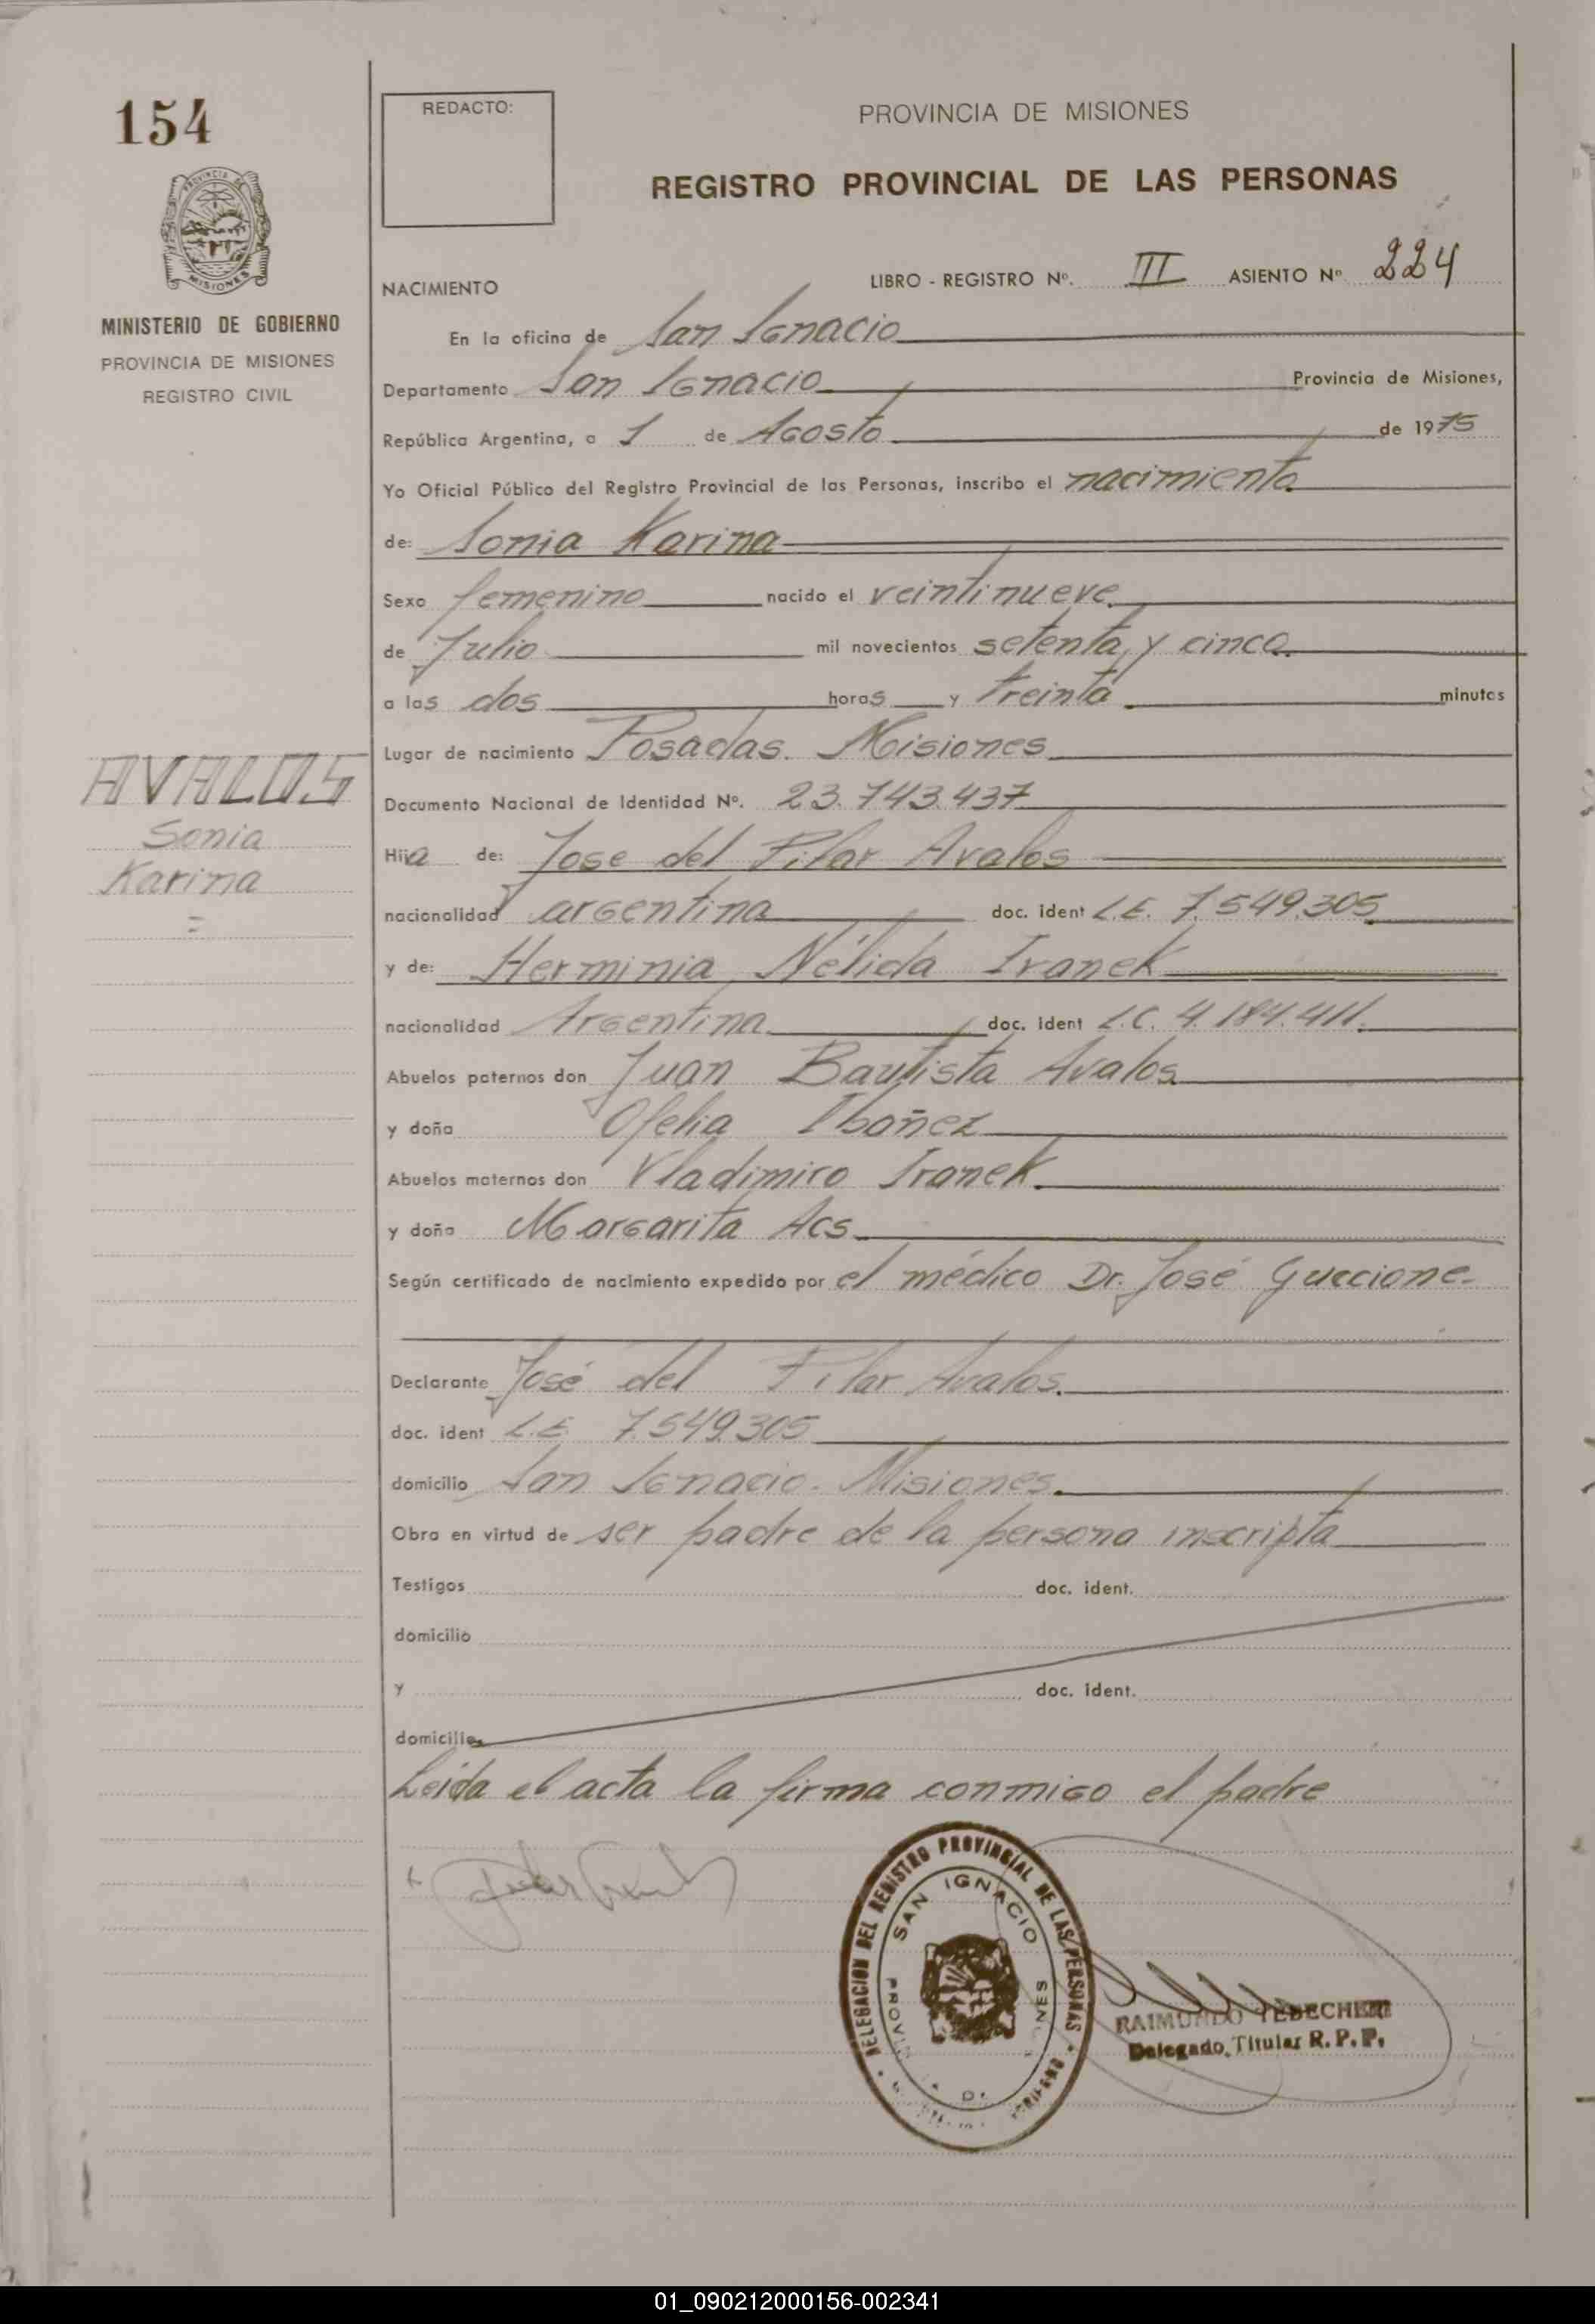 154
REDACTO:
PROVINCIA DE MISIONES
REGISTRO PROVINCIAL DE LAS PERSONAS
MINISTERIO DE GOBIERNO
PROVINCIA DE MISIONES
REGISTRO CIVIL
NACIMIENTO
LIBRO - REGISTRO Nº. III ASIENTO Nº 224
En la oficina de San Ignacio
Departamento San Ignacio Provincia de Misiones,
República Argentina, a 1 de Agosto de 1975
Yo Oficial Público del Registro Provincial de las Personas, inscribo el nacimiento
de: Sonia Karina
Sexo femenino nacido el veintinueve
de Julio mil novecientos setenta y cinco.
a las dos horas y treinta minutos
Lugar de nacimiento Posadas. Misiones
AVALOS
Sonia
Karina
Documento Nacional de Identidad Nº. 23.743.437
Hija de: Jose del Pilar Avalos
nacionalidad argentina doc. ident L.E. 7.549.305
y de: Herminia Nélida Ivanek
nacionalidad Argentina doc. ident L.C. 4.184.411.
Abuelos paternos don Juan Bautista Avalos
y doña Ofelia Ibañez
Abuelos maternos don Vladimiro Ivanek.
y doña Margarita Acs
Según certificado de nacimiento expedido por el médico Dr. José Guccione-
Declarante José del Pilar Avalos.
doc. ident L.E. 7.549.305
domicilio San Ignacio. Misiones.
Obra en virtud de ser padre de la persona inscripta
Testigos doc. ident.
domicilio
y doc. ident.
domicilio
Leída el acta la firma conmigo el padre
DELEGACION DEL REGISTRO PROVINCIAL DE LAS PERSONAS
SAN IGNACIO
RAIMUNDO
Delegado Titular R. P. P.
01_090212000156-002341